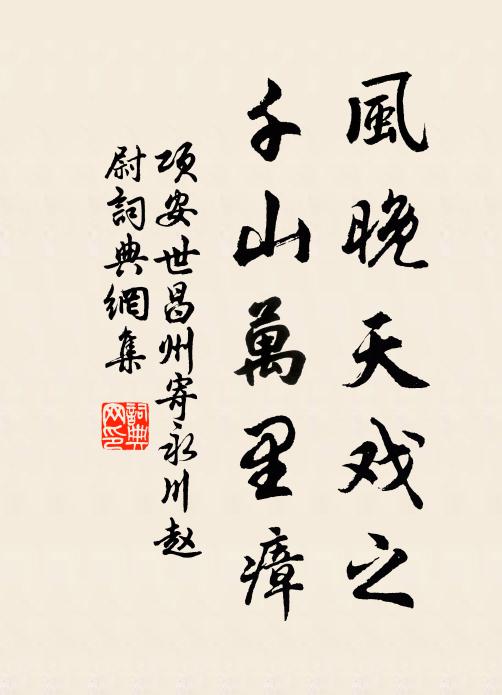 風晚天戏之
千山萬里瘴
项安世昌州寄永川赵
尉詞典網集
詞典网印